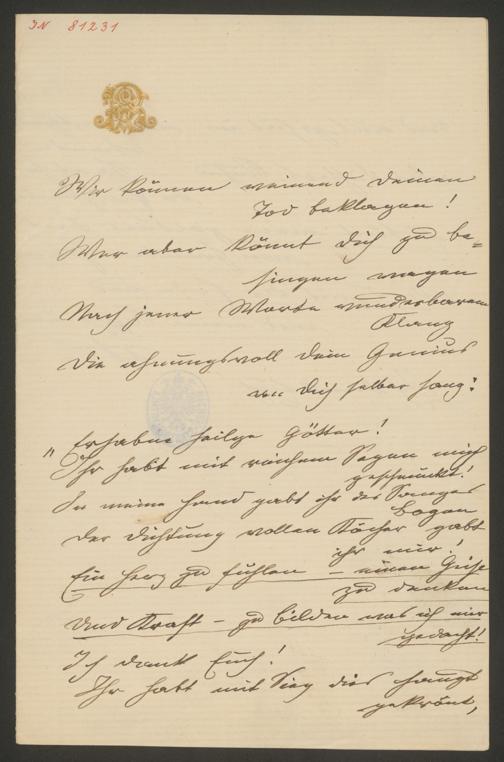 IN 81231
Wir können weinend deinen
Tod beklagen!
Wer aber könnt dich zu be=
singen wagen
Nach jener Worte wunderbarem
Klang
Die ahnungsvoll dein Genius
dich selber sang:
"Erhabne heilge Götter!
Ihr habt mit reichem Segen mich
geschmückt!
In meine Hand gabt ihr des Sanges
Bogen
Der Dichtung vollen Köcher gabt
ihr mir!
Ein Herz zu fühlen – einen Geist
zu denken
Und Kraft – zu bilden was ich mir
gedacht!
Ich dank Euch!
Ihr habt mit Sieg dies Haupt
gekrönt,